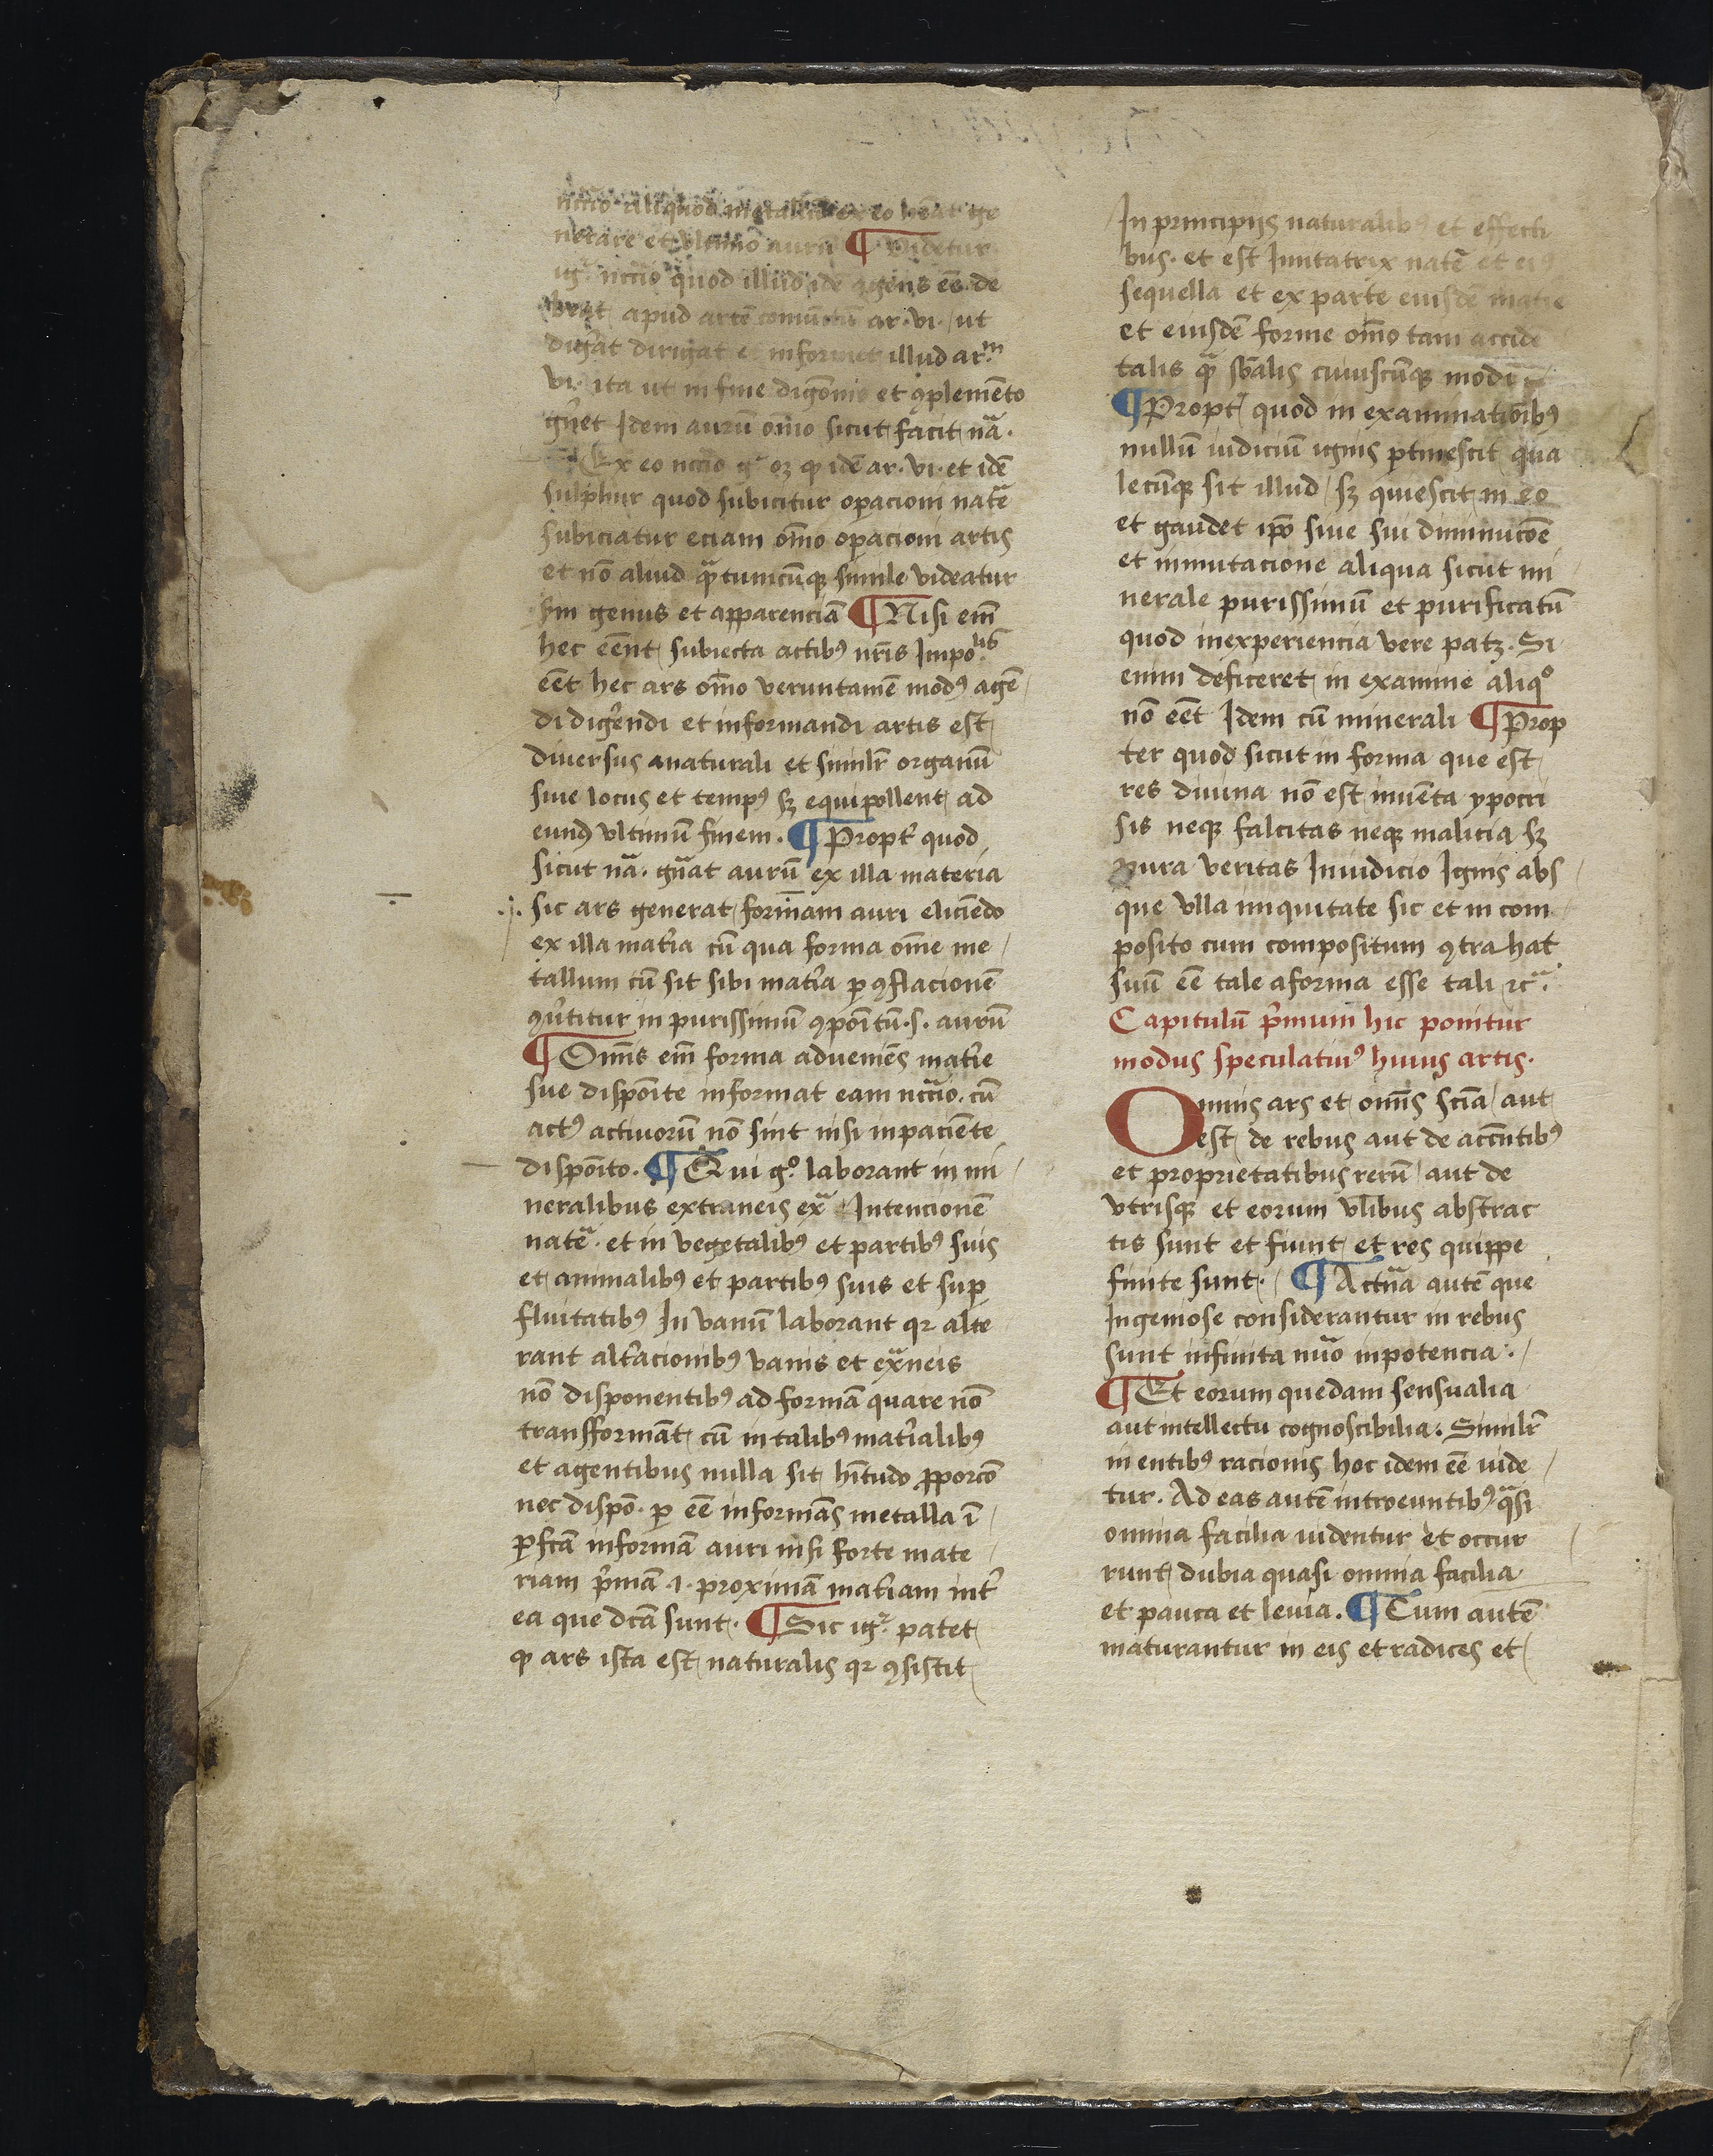 nccio aliquod metallū ex eo hēat ge
nerare et ultimo aurū ¶ Videtur
igr̄ nccio quod illud idē agens eē de
beat apud artē comūctū ar. vi. ut
digat dirigat et informet illud ar.m
vi. ita ut in fine digōnis et ꝯplemēto
gn̄et Idem aurū oīno sicut facit nā.
¶ Ex eo nccio gr oꝫ ꝙ idē ar. vi. et idē
sulphur quod subicitur oꝑacioni natē
subiciatur eciam oīno oꝑacioni artis
et nō aliud qͣtumcūqꝫ simile videatur
sm̄ genus et apparenciā ¶ Nisi eīm
hec eēnt subiecta actibꝰ nr̄is Impolis
eēt hec ars oīno veruntamē modꝰ agē
di digēndi et informandi artis est
diuersus anaturali et similr̄ organū
siue locus et tempꝰ sꝫ equipollent ad
eund vltimū finem. ¶ Propt̄ quod
sicut nā. gn̄at aurū ex illa materia
.j. sic ars generat formam auri eliciēdo
ex illa mat̄ia cū qua forma om̄e me
tallum cū sit sibi mat̄ia ꝑ ꝯflacionē
ꝯūtitur in purissimū ꝯpoītū .s. aurū
¶ Om̄is eīm forma adueniēs mat̄ie
sue dispoīte informat eam nccio. cū
actꝰ actiuorū nō sint nisi inpaciēte
dispoīto. ¶ Qui gͦ. laborant in mi
neralibus extraneis exͣ Intencionē
natē. et in vegetalibꝰ et partibꝰ suis
et animalibꝰ et partibꝰ suis et suꝑ
fluitatibꝰ In vanū laborant qꝛ alte
rant alt̄acionibꝰ vanis et exͣneis
nō disponentibꝰ ad formā quare nō
transformāt cū in talibꝰ mat̄ialibꝰ
et agentibus nulla sit hītudo ꝓporcō
nec dispō. ꝑ eē informās metalla ī
ꝑfcā informā auri nisi forte mate
riam p̄mā .i. proximā mat̄iam int̄
ea que dcā sunt. ¶ Sic igr̄ patet
ꝙ ars ista est naturalis qꝛ ꝯsistit
In principijs naturalibꝰ et effecti
bus. et est Imitatrix natē et eiꝰ
sequella et ex parte eiusdē matie
et eiusdē forme oīno tam accidē
talis qͣ sbālis cuiuscūqꝫ modi
¶ Propt̄ quod in examinatiōibꝰ
nullū iudiciū ignis ꝑtimescit qua
lecūqꝫ sit illud sꝫ quiescit in eo
et gaudet ipō siue sui diminucōe
et inmutacione aliqua sicut mi
nerale purissimū et purificatū
quod inexperiencia vere patꝫ. Si
enim deficeret in examine aliqͦ
nō eēt Idem cū minerali ¶ Prop
ter quod sicut in forma que est
res diuina nō est inuēta ypocri
sis neqꝫ falcitas neqꝫ malicia sꝫ
pura veritas Iniudicio Ignis abs
que vlla iniquitate sic et in com
posito cum compositum ꝯtrahat
suū eē tale aforma esse tali ꝛcͣ.
Capitulū p̄mum hic ponitur
modus speculatiuꝰ huius artis.
Omnis ars et om̄is scīa aut
est de rebus aut de accn̄tibꝰ
et proprietatibus rerū aut de
vtrisqꝫ et eorum vl̄ibus abstrac
tis sunt et fiunt et res quippe
finite sunt. ¶ Actūa autē que
Ingeniose considerantur in rebus
sunt infinita nūo inpotencia.
¶ Et eorum quedam sensualia
aut intellectu cognoscibilia. Similr̄
in entibꝰ racionis hoc idem eē uide
tur. Ad eas autē introeuntibꝰ qͣsi
omnia facilia uidentur et occur
runt dubia quasi omnia facilia
et pauca et leuia. ¶ Cum autē
maturantur in eis et radices et